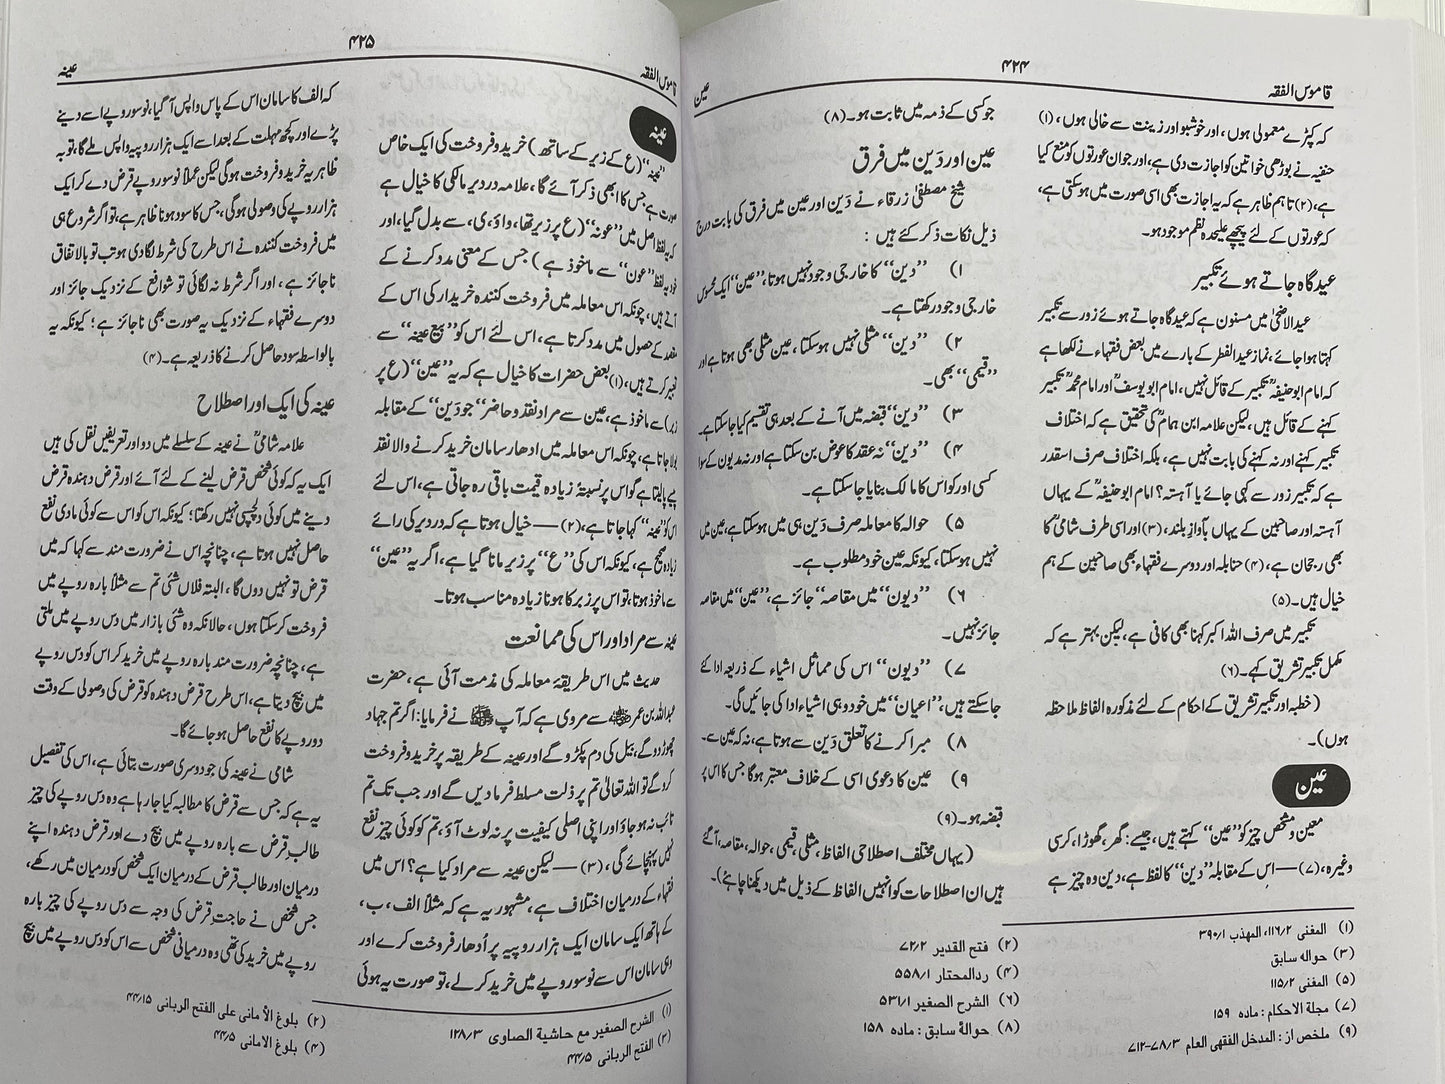 ۴۲۴
قاموس الفقہ
عین
کہ کپڑے معمولی ہوں ، اور خوشبو اور زینت سے خالی ہوں ، (۱)
حنفیہ نے بوڑھی خواتین کو اجازت دی ہے، اور جوان عورتوں کو منع کیا
ہے، (۲) تاہم ظاہر ہے کہ یہ اجازت بھی اسی صورت میں ہوسکتی ہے،
کہ عورتوں کے لئے پیچھے علیحدہ نظم موجود ہو۔
عیدگاہ جاتے ہوئے تکبیر
عید الاضحیٰ میں مسنون ہے کہ عیدگاہ جاتے ہوئے زور سے تکبیر
کہتا ہوا جائے ، نماز عید الفطر کے بارے میں بعض فقہاء نے لکھا ہے
کہ امام ابوحنیفہؒ تکبیر کے قائل نہیں ، امام ابو یوسفؒ اور امام محمدؒ تکبیر
کہنے کے قائل ہیں ، لیکن علامہ ابن ہمامؒ کی تحقیق ہے کہ اختلاف
تکبیر کہنے اور نہ کہنے کی بابت نہیں ہے ، بلکہ اختلاف صرف اسقدر
ہے کہ تکبیر زور سے کہی جائے یا آہستہ ؟ امام ابوحنیفہؒ کے یہاں
آہستہ اور صاحبین کے یہاں بآواز بلند ، (۳) اور اسی طرف شامیؒ کا
بھی رجحان ہے ، (۴) حنابلہ اور دوسرے فقہاء بھی صاحبین کے ہم
خیال ہیں ۔ (۵)
تکبیر میں صرف اللہ اکبر کہنا بھی کافی ہے ، لیکن بہتر ہے کہ
مکمل تکبیر تشریق کہے ۔ (۶)
( خطبہ اور تکبیر تشریق کے احکام کے لئے مذکورہ الفاظ ملاحظہ
ہوں ) ۔
عین
معین و مشخص چیز کو ”عین“ کہتے ہیں ، جیسے : گھر ، گھوڑا ، کرسی
وغیرہ ، (۷) — اس کے مقابلہ ”دین“ کا لفظ ہے ، دین وہ چیز ہے
جو کسی کے ذمہ میں ثابت ہو۔ (۸)
عین اور دَین میں فرق
شیخ مصطفیٰ زرقاء نے دَین اور عین میں فرق کی بابت درج
ذیل نکات ذکر کئے ہیں :
۱) ”دین“ کا خارجی وجود نہیں ہوتا ، ”عین“ ایک محسوس
خارجی وجود رکھتا ہے ۔
۲) ”دین“ مثلی نہیں ہوسکتا ، عین مثلی بھی ہوتا ہے اور
”قیمی“ بھی ۔
۳) ”دین“ قبضہ میں آنے کے بعد ہی تقسیم کیا جاسکتا ہے ۔
۴) ”دین“ نہ عقد کا عوض بن سکتا ہے اور نہ مدیون کے سوا
کسی اور کو اس کا مالک بنایا جاسکتا ہے ۔
۵) حوالہ کا معاملہ صرف دَین ہی میں ہوسکتا ہے ، عین میں
نہیں ہوسکتا ، کیونکہ عین خود مطلوب ہے ۔
۶) ”دیون“ میں مقاصہ جائز ہے ، ”عین“ میں مقاصہ
جائز نہیں ۔
۷) ”دیون“ اس کی مماثل اشیاء کے ذریعہ ادا کئے
جاسکتے ہیں ، ”اعیان“ میں خود وہی اشیاء ادا کی جائیں گی ۔
۸) مبرا کرنے کا تعلق دَین سے ہوتا ہے ، نہ کہ عین سے ۔
۹) عین کا دعویٰ اسی کے خلاف معتبر ہوگا جس کا اس پر
قبضہ ہو ۔ (۹)
( یہاں مختلف اصطلاحی الفاظ ، مثلی ، قیمی ، حوالہ ، مقاصہ ، آگئے
ہیں ان اصطلاحات کو انہیں الفاظ کے ذیل میں دیکھنا چاہئے ) ۔
(۱) المغنی ۱۱۶/۲، المهذب ۳۹۰/۱
(۲) فتح القدیر ۷۲/۲
(۳) حواله سابق
(۴) ردالمحتار ۵۵۸/۱
(۵) المغنی ۱۱۵/۲
(۶) الشرح الصغیر ۵۳۱/۱
(۷) مجلة الاحکام : ماده ۱۵۹
(۸) حوالۂ سابق : ماده ۱۵۸
(۹) ملخص از : المدخل الفقهی العام ۷۸/۳–۷۱۲
۴۲۵
قاموس الفقہ
عینہ
عینہ
”عینہ“ (ع کے زیر کے ساتھ ) خرید و فروخت کی ایک خاص
صورت ہے جس کا ابھی ذکر آئے گا ، علامہ دردیر مالکی کا خیال ہے
کہ یہ لفظ اصل میں ”عونہ“ (ع پر زیر تھا ، واؤ ی ، سے بدل گیا ، اور
خود یہ لفظ ”عون“ سے ماخوذ ہے ) جس کے معنی مدد کرنے کے
آتے ہیں ، چونکہ اس معاملہ میں فروخت کنندہ خریدار کی اس کے
مقصد کے حصول میں مدد کرتا ہے ، اس لئے اس کو ”بیع عینہ“ سے
تعبیر کرتے ہیں ، (۱) بعض حضرات کا خیال ہے کہ یہ ”عین“ (ع پر
زبر ) سے ماخوذ ہے ، عین سے مراد نقد و حاضر ” جو دَین“ کے مقابلہ
بولا جاتا ہے ، چونکہ اس معاملہ میں ادھار سامان خرید کرنے والا نقد
پیسے پالیتا ہے گو اس پر نسبتۂ زیادہ قیمت باقی رہ جاتی ہے ، اس لئے
اس کو ”عینہ“ کہا جاتا ہے ، (۲) — خیال ہوتا ہے کہ دردیر کی رائے
زیادہ صحیح ہے ، کیونکہ اس کی ”ع“ پر زیر مانا گیا ہے ، اگر یہ ”عین“
سے ماخوذ ہوتا ، تو اس پر زبر کا ہونا زیادہ مناسب ہوتا ۔
عینہ سے مراد اور اس کی ممانعت
حدیث میں اس طریقۂ معاملہ کی مذمت آئی ہے ، حضرت
عبداللہ بن عمر سے مروی ہے کہ آپ ﷺ نے فرمایا : اگر تم جہاد
چھوڑ دو گے ، بیل کی دم پکڑو گے اور عینہ کے طریقہ پر خرید و فروخت
کرو گے تو اللہ تعالیٰ تم پر ذلت مسلط فرمادیں گے اور جب تک تم
تائب نہ ہو جاؤ اور اپنی اصلی کیفیت پر نہ لوٹ آؤ ، تم کو کوئی چیز نفع
نہیں پہنچائے گی ، (۳) — لیکن عینہ سے مراد کیا ہے ؟ اس میں
فقہاء کے درمیان اختلاف ہے ، مشہور یہ ہے کہ مثلاً الف ، ب ،
کے ہاتھ ایک سامان ایک ہزار روپیہ پر اُدھار فروخت کرے اور
وہی سامان اس سے نو سو روپے میں خرید کر لے ، تو صورت یہ ہوئی
کہ الف کا سامان اس کے پاس واپس آگیا ، نو سو روپے اسے دینے
پڑے اور کچھ مہلت کے بعد اسے ایک ہزار روپیہ واپس ملے گا ، تو بہ
ظاہر یہ خرید و فروخت ہوگی لیکن عملاً نو سو روپے قرض دے کر ایک
ہزار روپے کی وصولی ہوگی ، جس کا سود ہونا ظاہر ہے ، تو اگر شروع ہی
میں فروخت کنندہ نے اس طرح کی شرط لگادی ہو تب تو بالاتفاق
ناجائز ہے ، اور اگر شرط نہ لگائی تو شوافع کے نزدیک جائز اور
دوسرے فقہاء کے نزدیک یہ صورت بھی ناجائز ہے ؛ کیونکہ یہ
بالواسطہ سود حاصل کرنے کا ذریعہ ہے ۔ (۴)
عینہ کی ایک اور اصطلاح
علامہ شامیؒ نے عینہ کے سلسلے میں دو اور تعریفیں نقل کی ہیں
ایک یہ کہ کوئی شخص قرض لینے کے لئے آئے اور قرض دہندہ قرض
دینے میں کوئی دلچسپی نہیں رکھتا ؛ کیونکہ اس کو اس سے کوئی مادی نفع
حاصل نہیں ہوتا ہے ، چنانچہ اس نے ضرورت مند سے کہا کہ میں
قرض تو نہیں دوں گا ، البتہ فلاں شئی تم سے مثلاً بارہ روپے میں
فروخت کرسکتا ہوں ، حالانکہ وہ شئی بازار میں دس روپے میں ملتی
ہے ، چنانچہ ضرورت مند بارہ روپے میں خرید کر اس کو دس روپے
میں بیچ دیتا ہے ، اس طرح قرض دہندہ کو قرض کی وصولی کے وقت
دو روپے کا نفع حاصل ہو جائے گا ۔
شامی نے عینہ کی جو دوسری صورت بتائی ہے ، اس کی تفصیل
یہ ہے کہ جس سے قرض کا مطالبہ کیا جارہا ہے وہ دس روپے کی چیز
طالب قرض سے بارہ روپے میں بیچ دے اور قرض دہندہ اپنے
درمیان اور طالب قرض کے درمیان ایک شخص کو درمیان میں رکھے ،
جس شخص نے حاجت قرض کی وجہ سے دس روپے کی چیز بارہ
روپے میں خرید کی تھی وہ درمیانی شخص سے اس کو دس روپے میں بیچ
(۱) الشرح الصغیر مع حاشیة الصاوی ۱۲۸/۳
(۲) بلوغ الأمانی علی الفتح الربانی ۴۴/۱۵
(۳) الفتح الربانی ۴۴/۵
(۴) بلوغ الامانی ۴۴/۵